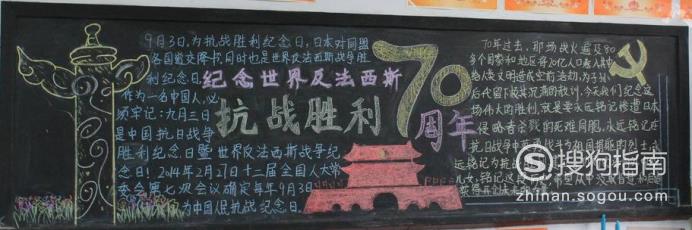 9月3日,为抗战胜利纪念日,日本对同盟
各国递交降书,同时也是世界反法西斯战争胜
利纪念日
作为一名中国人,必
须牢记:九月三日
是中国抗日战争
胜利纪念日暨世界反法西斯战争纪
念日!2014年2月27日十二届全国人大常
委会第七次会议确定每年9月3日
为中国人民抗战纪念日。
纪念世界反法西斯
抗战胜利70
周年
70年过去,那场战火遍及80
多个国家和地区将20亿人口卷入其中
给人类文明造成空前浩劫,为子孙
后代留下极其沉痛的教训,今天我们纪念这
场伟大的胜利,就是要永远铭记惨遭日本
侵略者杀戮的死难同胞,永远铭记在
抗日战争中
搜狗指南
zhinan.sogou.com